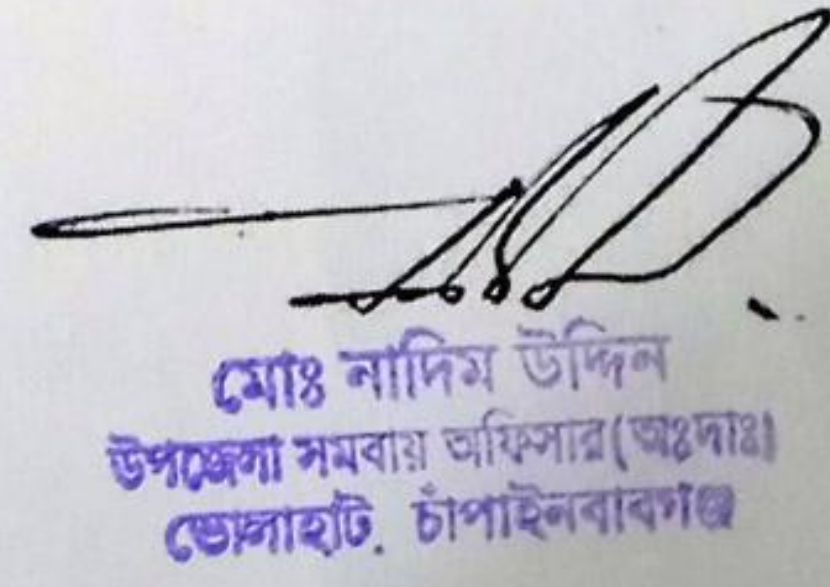 মোঃ নাদিম উদ্দিন
উপজেলা সমবায় অফিসার (অঃদাঃ)
ভোলাহাট. চাঁপাইনবাবগঞ্জ